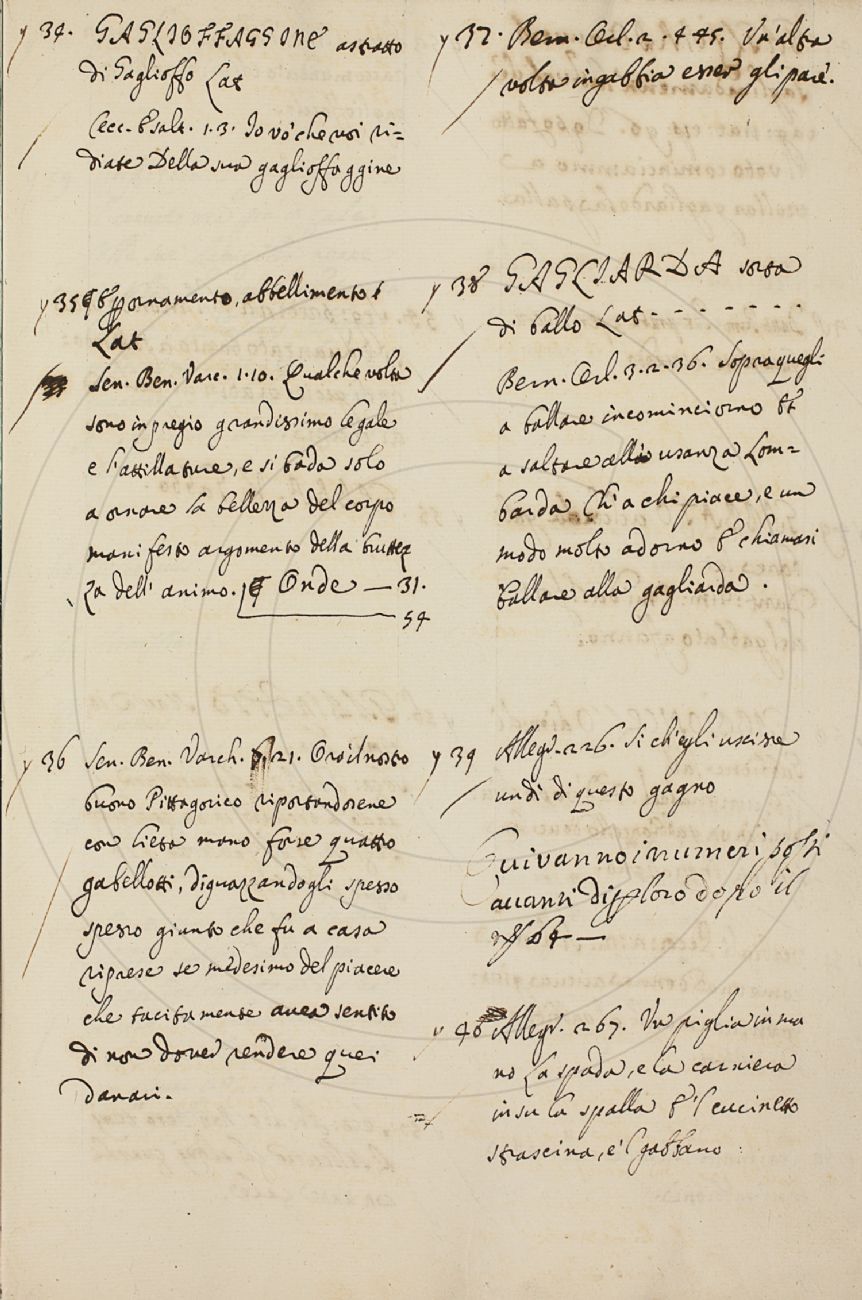 y 34. GAGLIOFFAGGINE astratto
di Gaglioffo Lat
Cecc. Esalt. 1.3. Io vò che voi ri=
diate Della sua gaglioffaggine
y 35 ornamento, abbellimento
Lat
Sen. Ben. Varc. 1.10. Qualche volta
sono in pregio grandissimo le gale
e l'attillature, e si bada solo
a ornare la bellezza del corpo
manifesto argomento della brutez
za dell' animo. Onde — 31.
54
y 36 Sen. Ben. Varch. 21. Ora il nostro
buono Pittagorico riportandosene
con lieta mano forse quattro
gabellotti, diguazzandogli spesso
spesso giunto che fu a casa
riprese se medesimo del piacere
che tacitamente avea sentito
di non dover rendere quei
danari.
y 37. Bern. Orl. 2. 4 45. Un'altra
volta in gabbia esser gli pare.
y 38 GAGLIARDA sorta
di ballo Lat - - - - - - -
Bern. Orl. 3.2.36. Sopra quegli
a ballare incominciorno Et
a saltare alla usanza Lom=
barda Ch'a chi piace, e un
modo molto adorno E chiamasi
ballare alla gagliarda.
y 39 Allegr. 226. Si ch'egli uscisse
un dì di questo gagno
Qui vanno i numeri posti
avanti di loro dopo il
n.° 64 —
y 40 Allegr. 267. Un piglia in ma
no la spada, e la carniera
in su la spalla E 'l cucinetto
strascina, e 'l gabbano